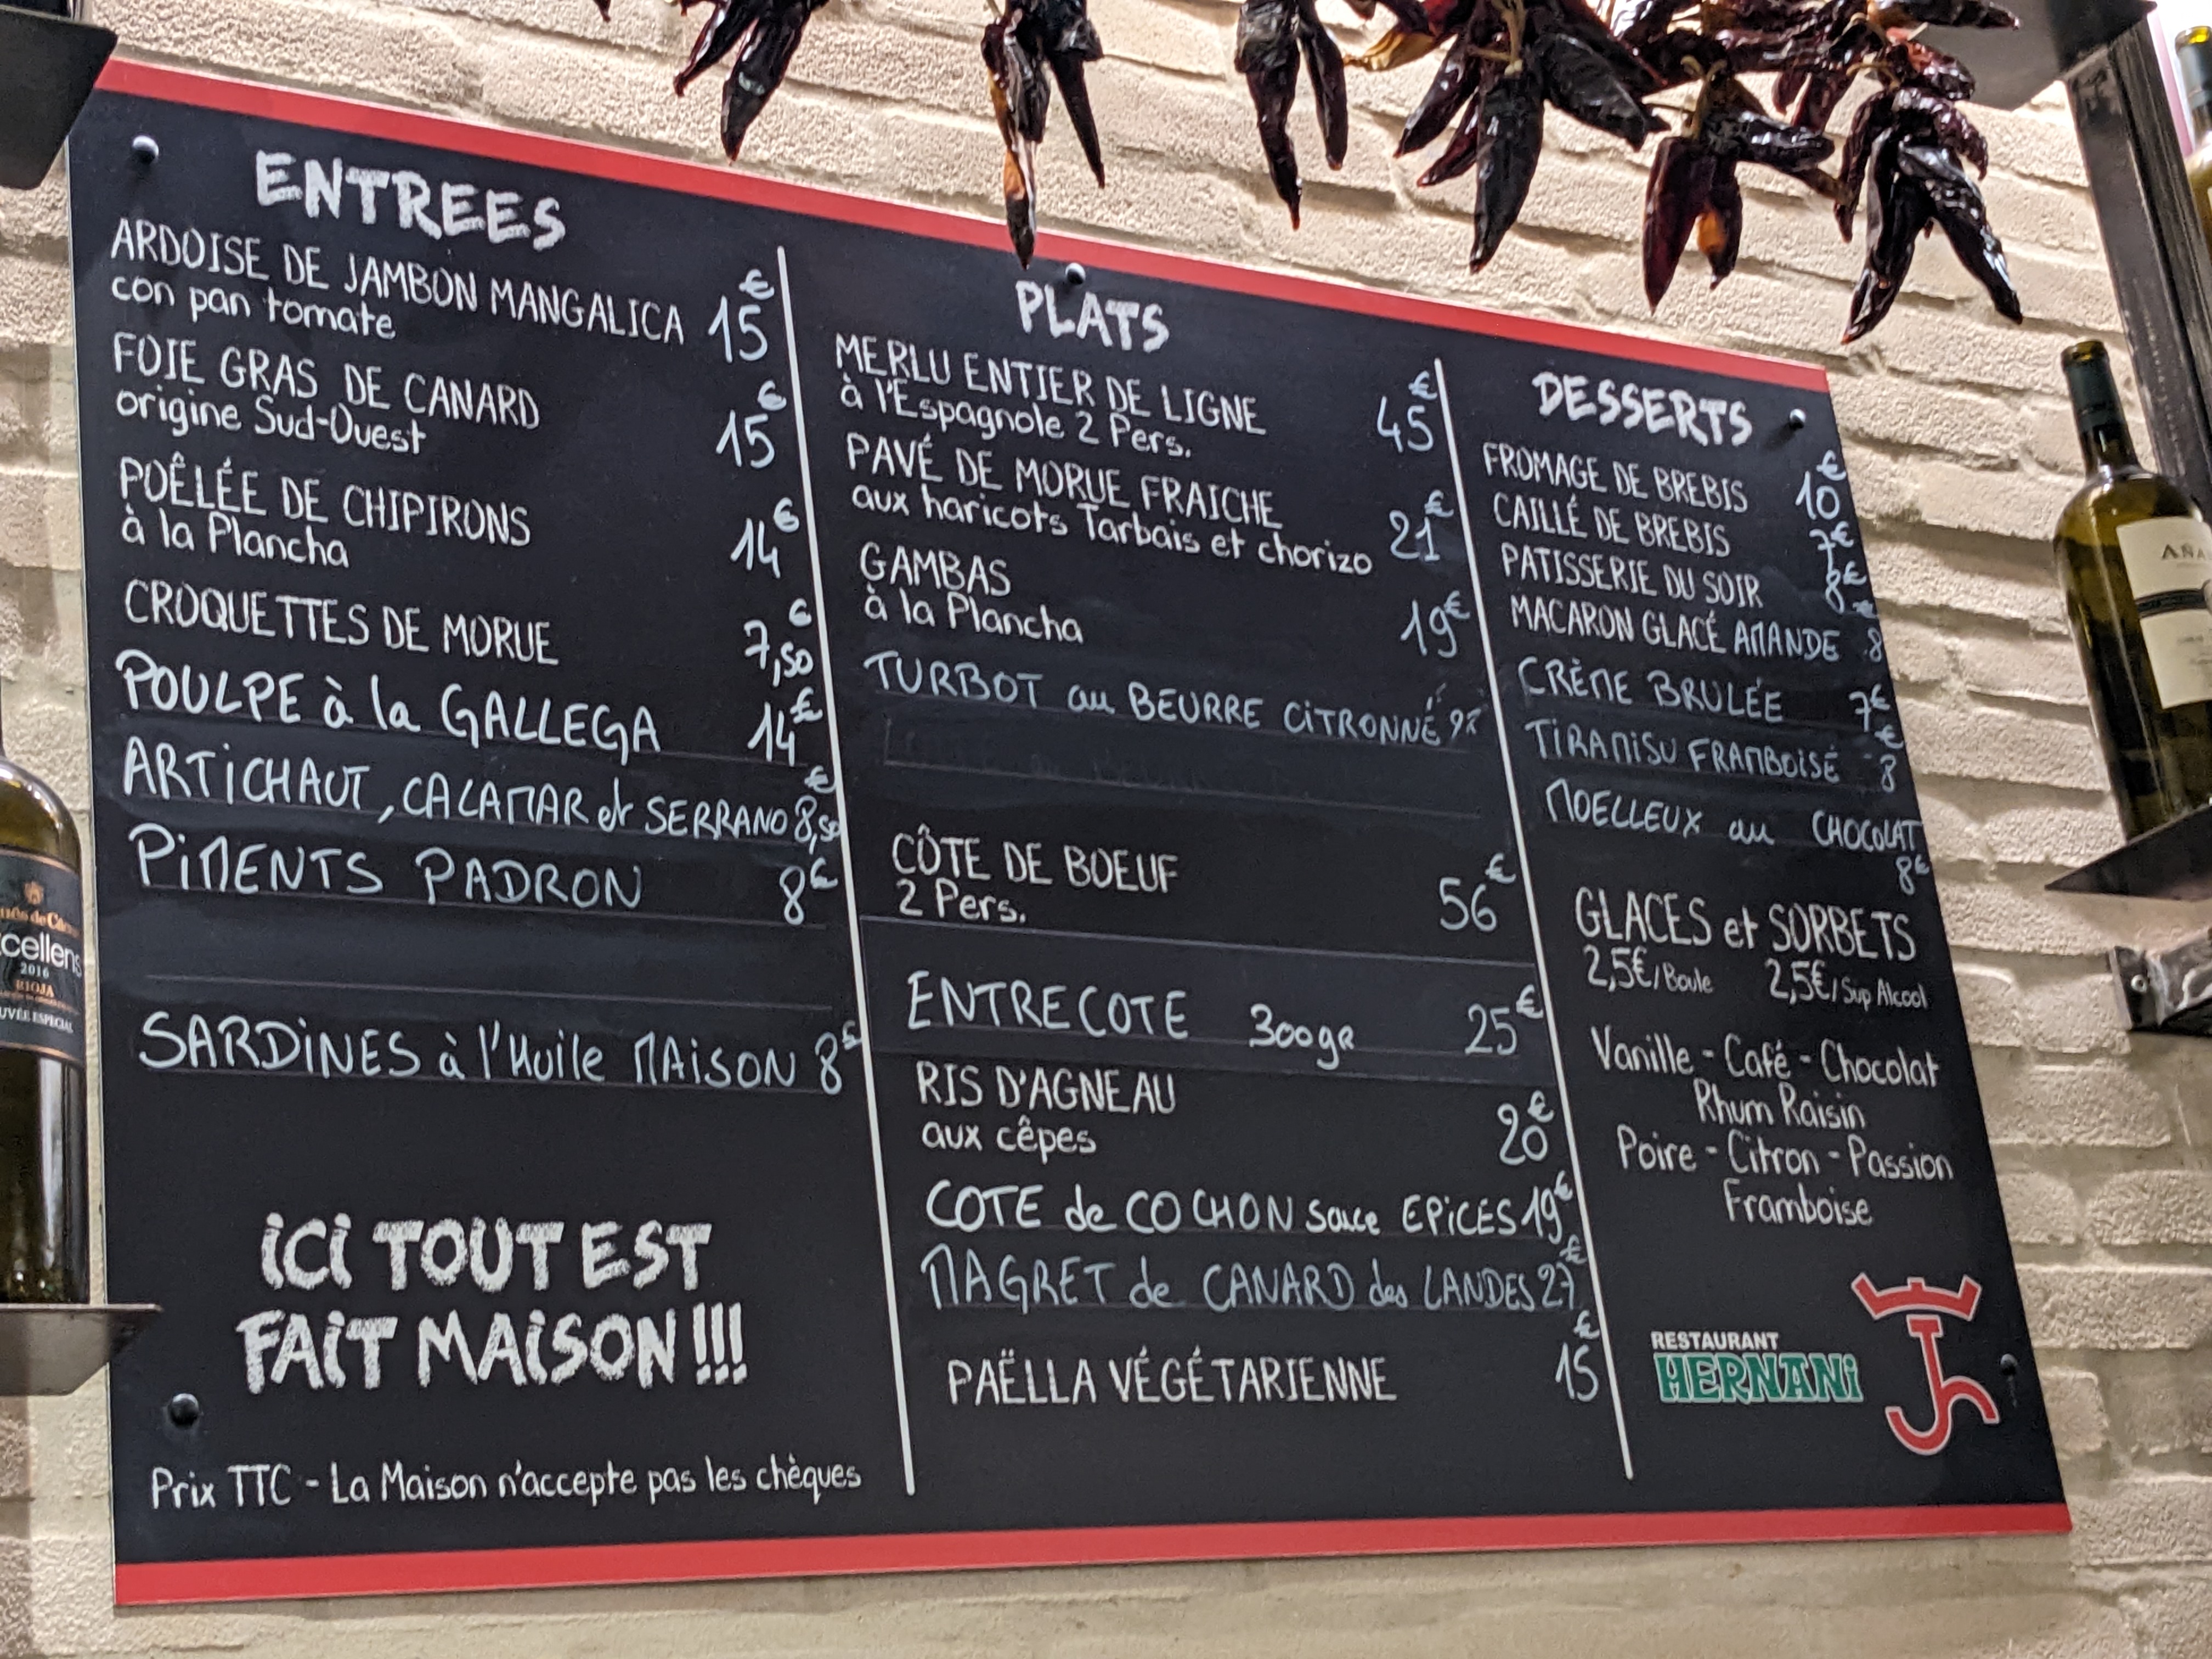 ENTREES
ARDOISE DE JAMBON MANGALICA 15€
con pan tomate
FOIE GRAS DE CANARD
origine Sud-Ouest 15€
POÊLÉE DE CHIPIRONS
à la Plancha 14€
CROQUETTES DE MORUE 7,50€
POULPE à la GALLEGA 14€
ARTiCHAUT, CALAMAR et SERRANO 8,50€
PiMENTS PADRON 8€
SARDiNES à l'Huile MAiSON 8€
iCi TOUT EST
FAiT MAiSON !!!
Prix TTC - La Maison n'accepte pas les chèques
PLATS
MERLU ENTIER DE LIGNE
à l'Espagnole 2 Pers. 45€
PAVÉ DE MORUE FRAICHE
aux haricots Tarbais et chorizo 21€
GAMBAS
à la Plancha 19€
TURBOT au BEURRE CiTRONNÉ
CÔTE DE BOEUF
2 Pers. 56€
ENTRECOTE 300gr 25€
RIS D'AGNEAU
aux cêpes 20€
COTE de COCHON sauce EPiCES 19€
MAGRET de CANARD des LANDES 27€
PAËLLA VÉGÉTARIENNE 15€
DESSERTS
FROMAGE DE BREBIS 10€
CAILLÉ DE BREBIS 7€
PATISSERIE DU SOIR 8€
MACARON GLACÉ AMANDE 8€
CRÈME BRULÉE 7€
TiRAMiSU FRAMBOiSE 8€
MOELLEUX au CHOCOLAT
8€
GLACES et SORBETS
2,5€/Boule 2,5€/Sup Alcool
Vanille - Café - Chocolat
Rhum Raisin
Poire - Citron - Passion
Framboise
RESTAURANT
HERNANi
2016
RIOJA